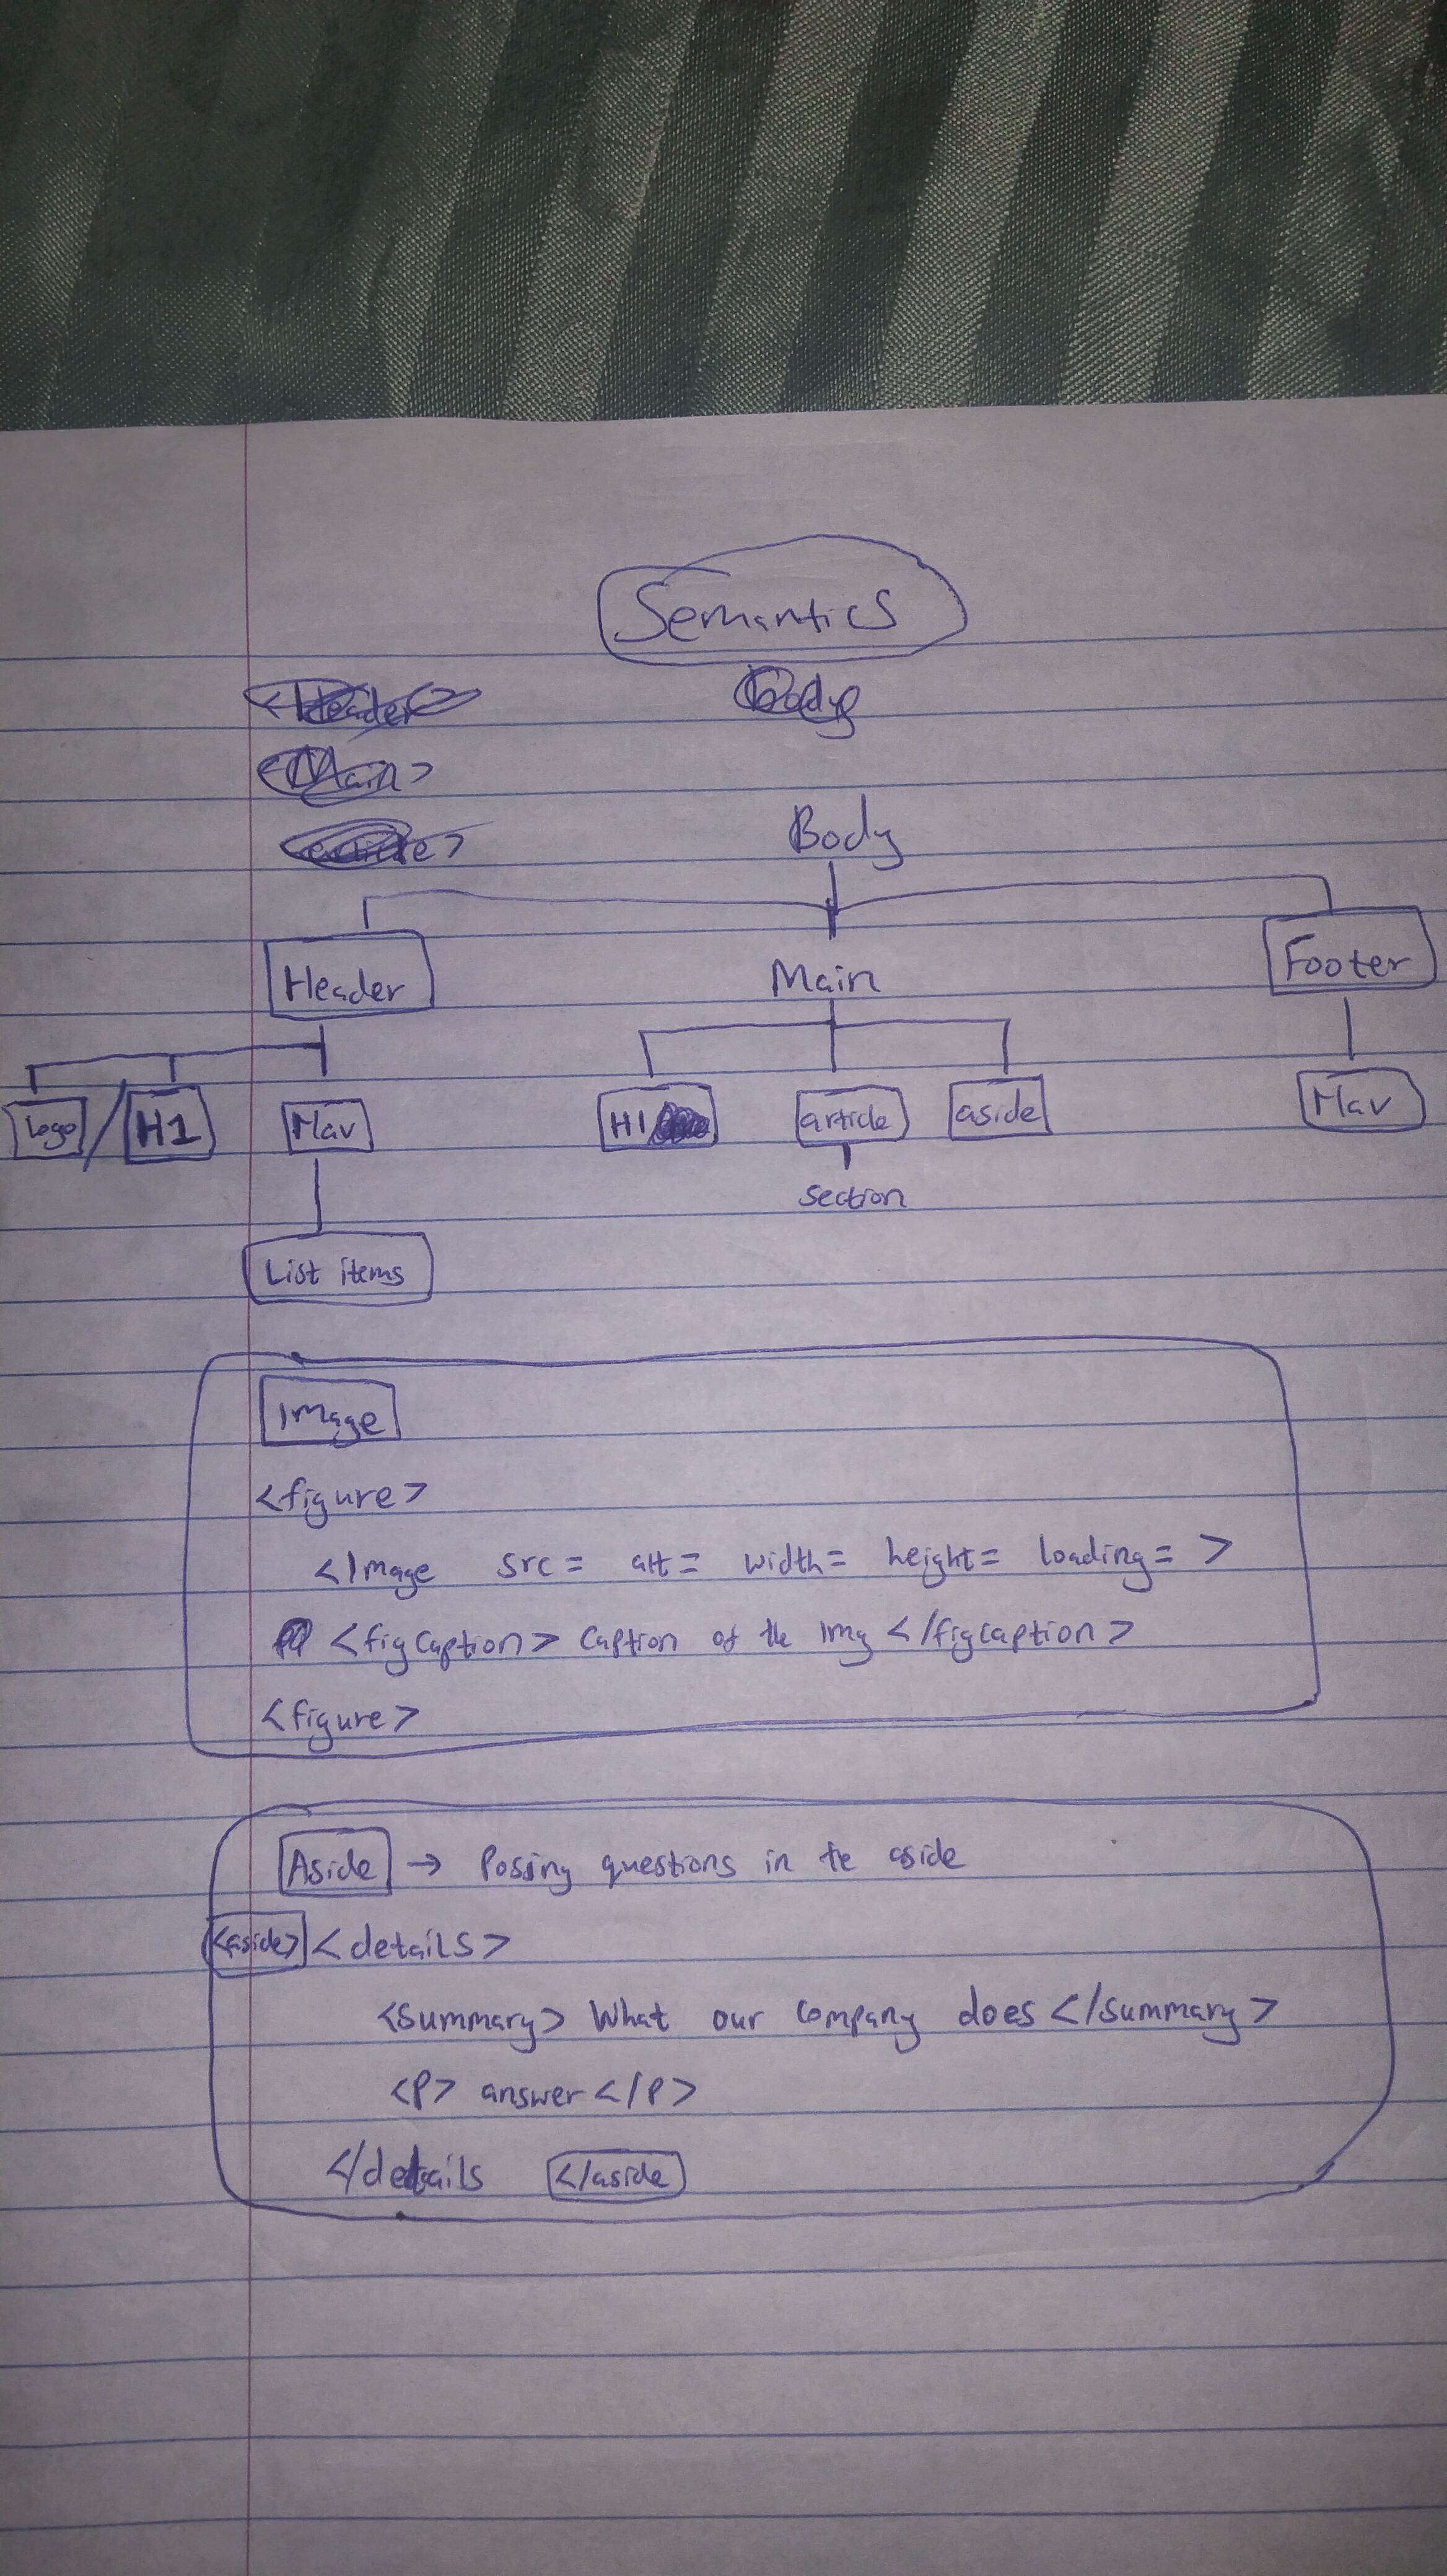 Semantics
Body
Header Main Footer
Logo / H1 Nav H1 article aside Nav
section
List items
Image
<figure>
<Image src= alt= width= height= loading= >
<figcaption> Caption of the img </figcaption>
<figure>
Aside → Possing questions in the aside
<aside> <details>
<summary> What our company does </summary>
<P> answer </P>
</details </aside>